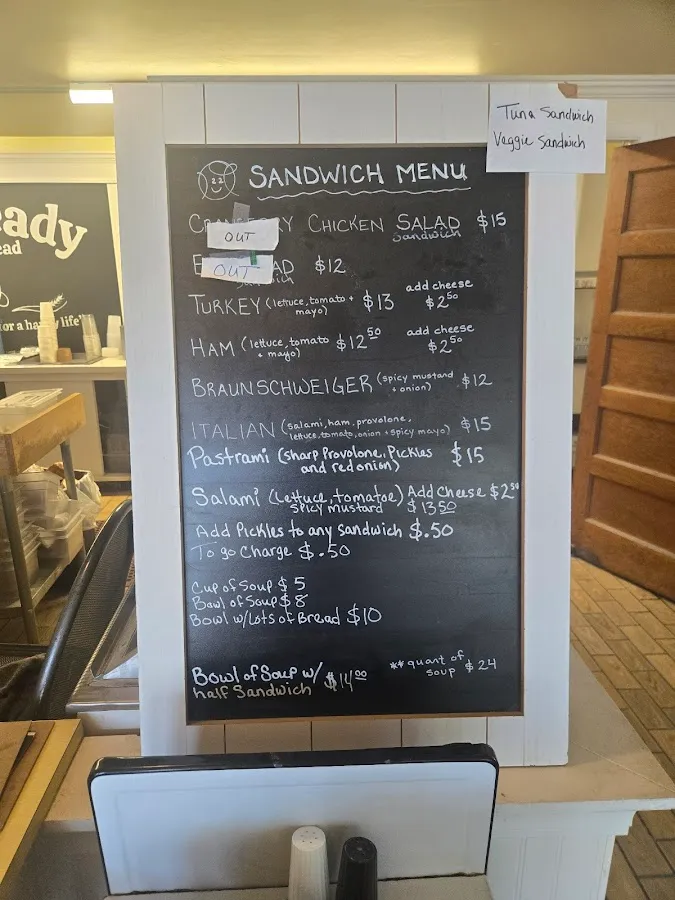 Tuna Sandwich
Veggie Sandwich
SANDWICH MENU
CHICKEN SALAD $15
Sandwich
OUT
OUT AD $12
TURKEY (lettuce, tomato + mayo) $13 add cheese $2.50
HAM (lettuce, tomato + mayo) $12.50 add cheese $2.50
BRAUNSCHWEIGER (spicy mustard + onion) $12
ITALIAN (salami, ham, provolone, lettuce, tomato, onion + spicy mayo) $15
Pastrami (sharp Provolone, Pickles and red onion) $15
Salami (Lettuce, tomatoe) Add Cheese $2.50
spicy mustard $13.50
Add Pickles to any sandwich $.50
To go Charge $.50
Cup of Soup $5
Bowl of Soup $8
Bowl w/Lots of Bread $10
Bowl of Soup w/ half Sandwich $14.00
** quart of soup $24
eady
ead
or a ha y life"